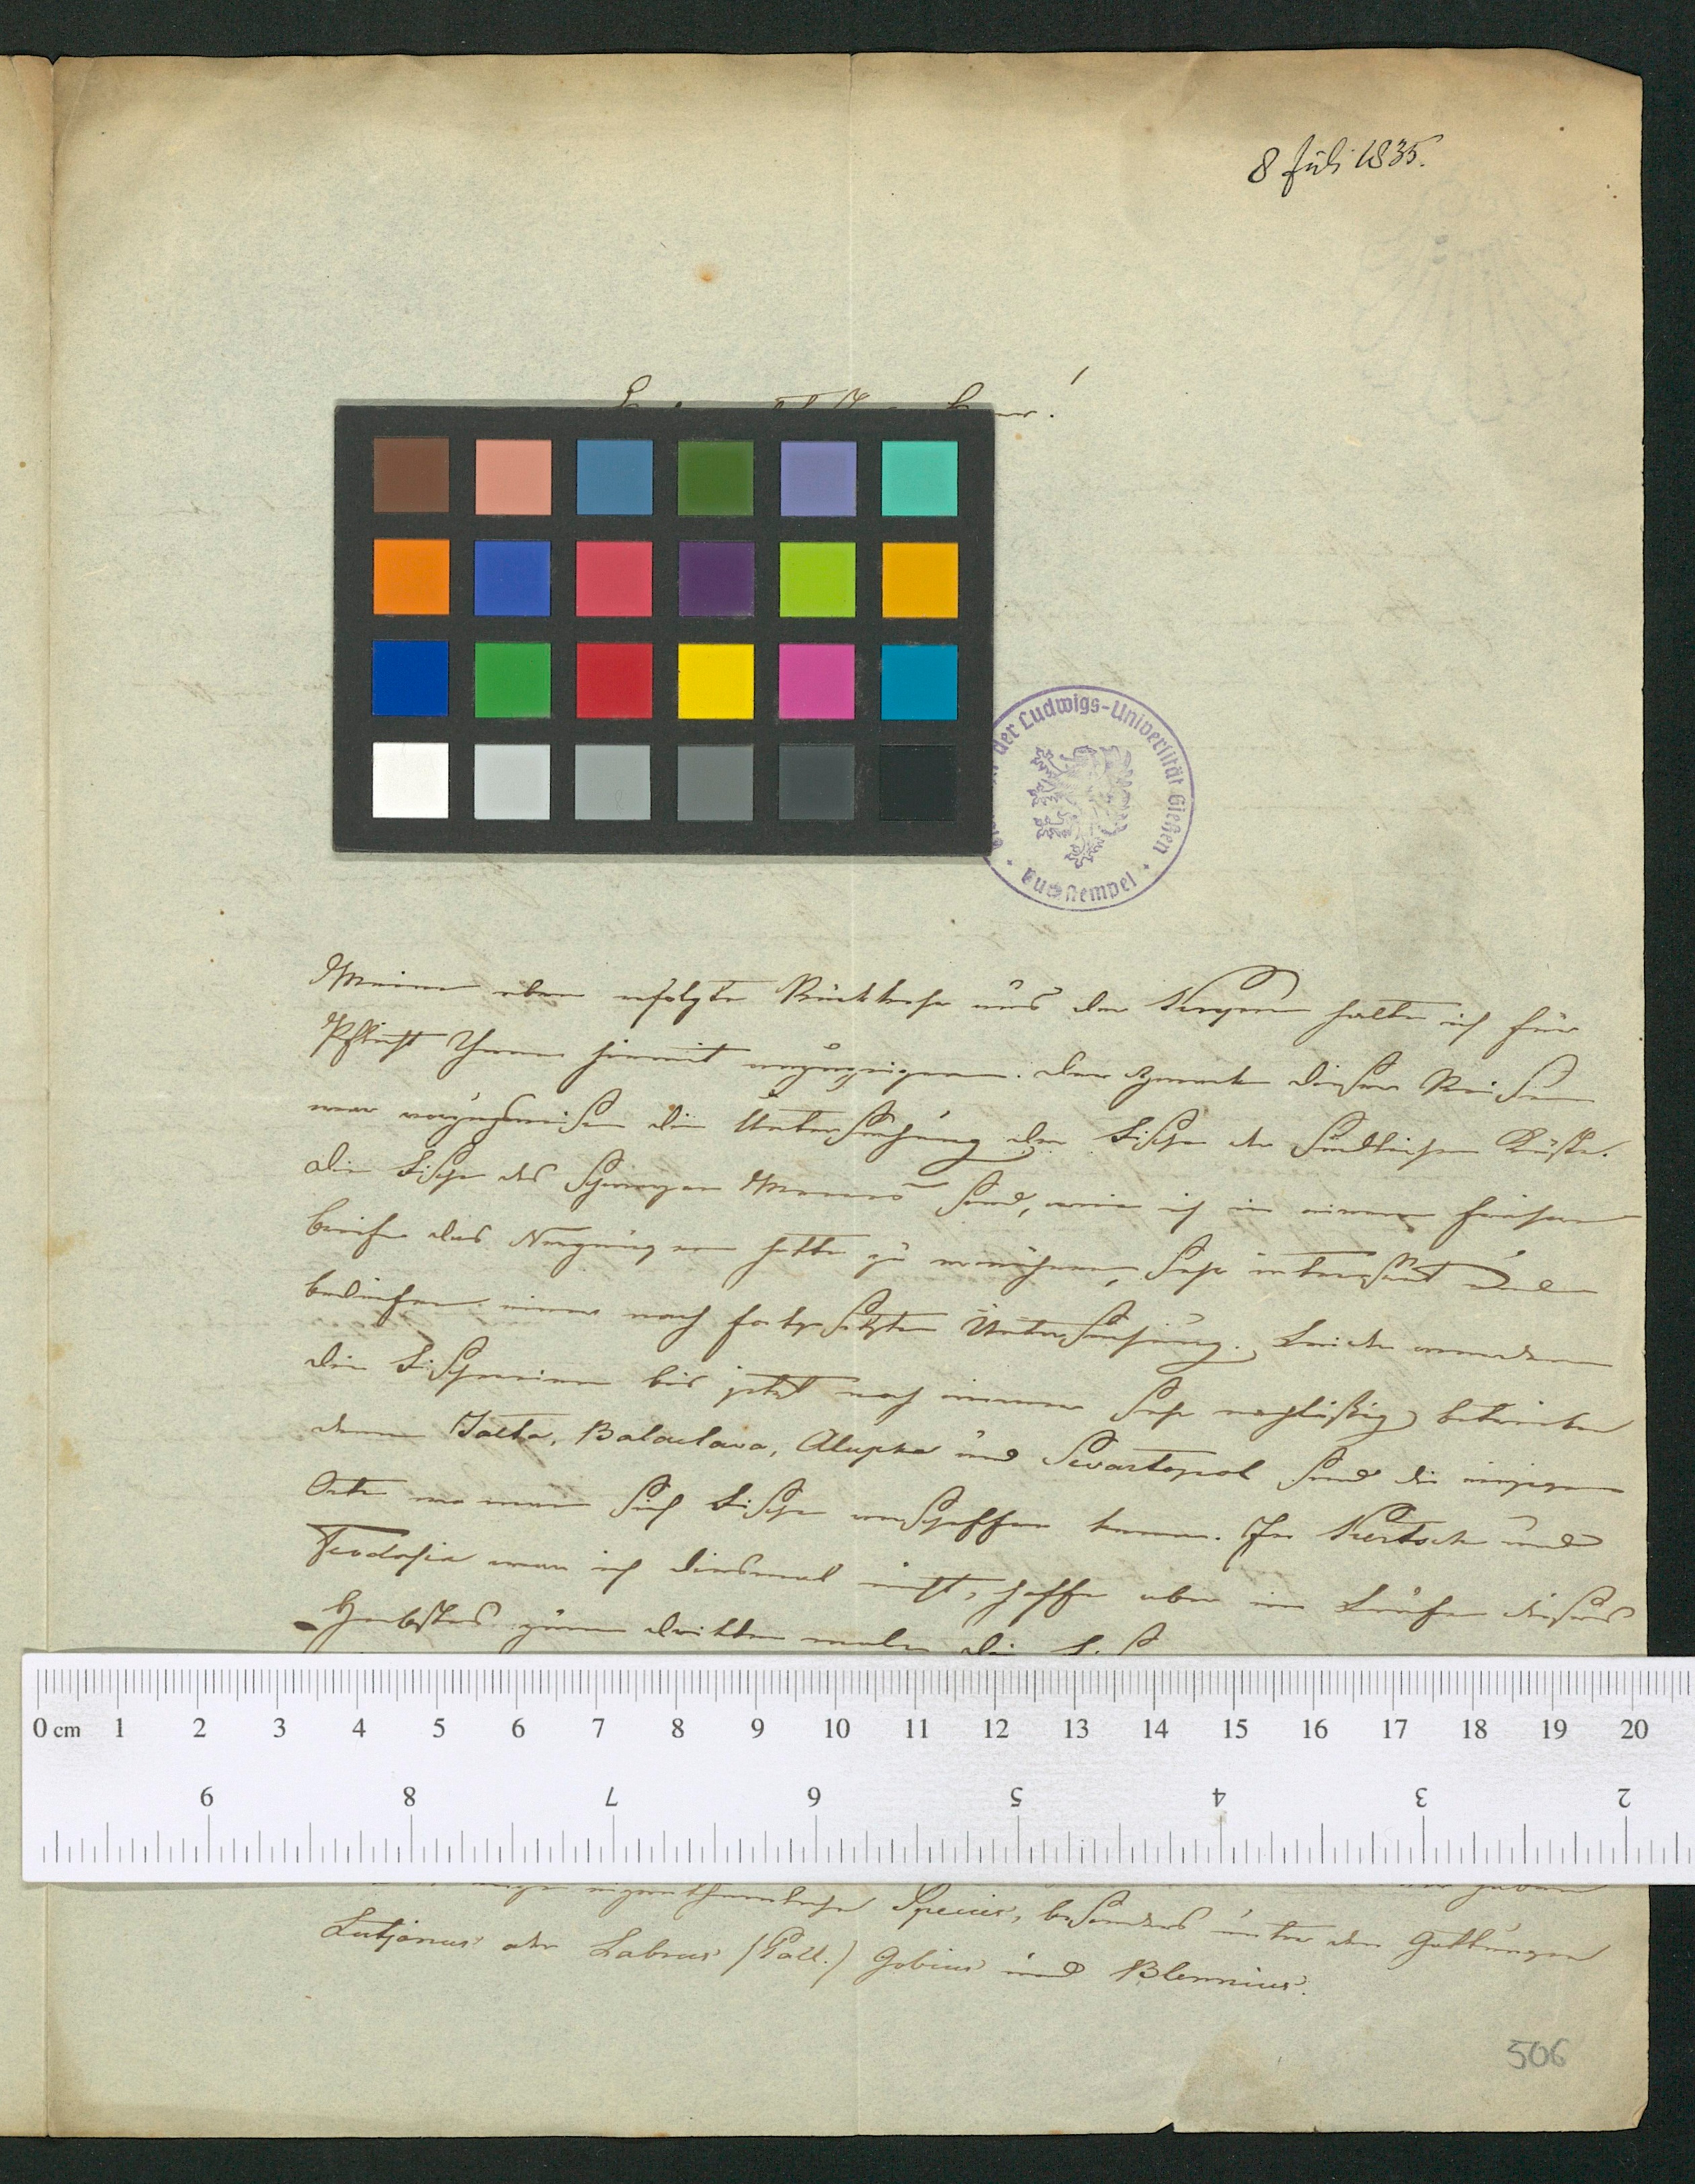 8 Juli 1835.
der Ludwigs-Universität Gießen
Meine eben erfolgte Rückkehr aus der Krym halte ich für
Pflicht Ihnen hiermit anzuzeigen. Der Zweck dieser Reise
war vorzugsweise die Untersuchung der Fische der südlichen Küste.
Die Fische des schwarzen Meeres sind, wie ich in einem frühern
Briefe das Vergnügen hatte zu erwähnen, sehr interessant und
bedürfen einer noch fortgesetzten Untersuchung. Leider werden
die Fischereien bis jetzt noch immer sehr nachläßig betrieben
denn Jalta, Balaclava, Alupka und Sevastopol sind die einzigen
Orte wo man sich Fische verschaffen kann. In Kertsch und
Feodosia war ich diesmal nicht, hoffe aber im Laufe dieses
Herbstes zum dritten male die
0 cm 1 2 3 4 5 6 7 8 9 10 11 12 13 14 15 16 17 18 19 20
9 8 7 6 5 4 3 2
eigenthümliche Species, besonders unter den Gattungen
Lutjanus oder Labrus (Pall.) Gobius und Blennius.
506